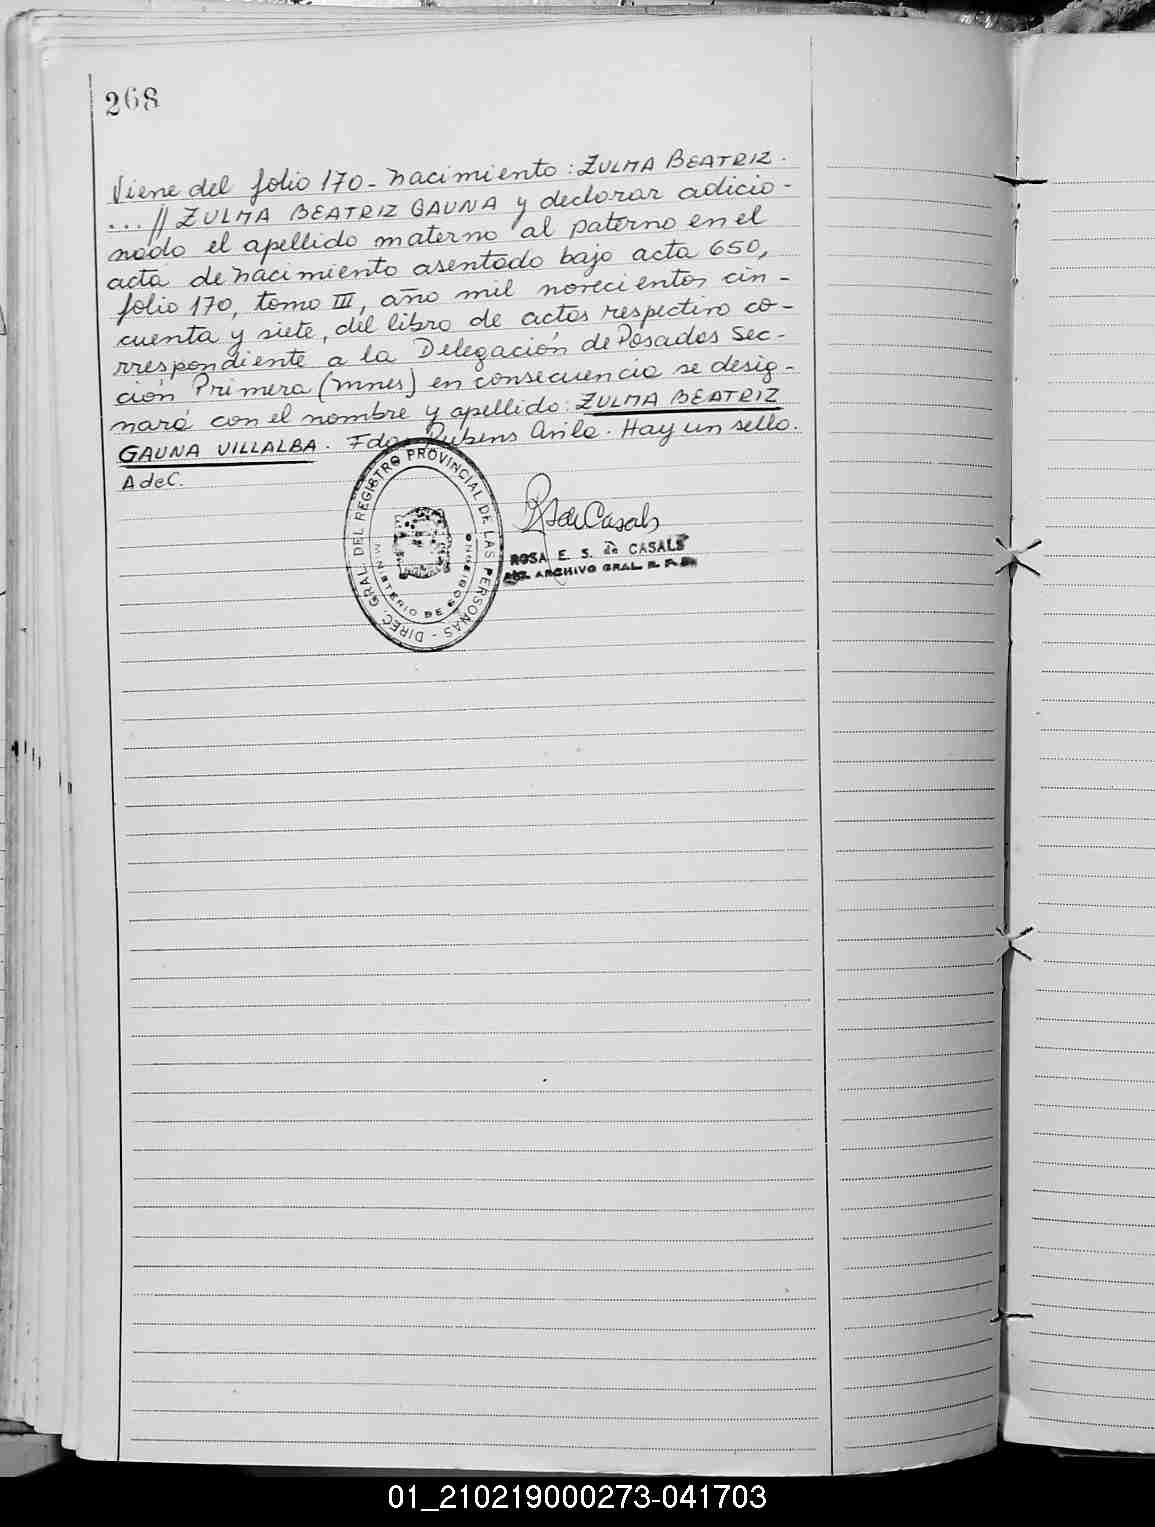 268
Viene del folio 170 - nacimiento: ZULMA BEATRIZ.
...// ZULMA BEATRIZ GAUNA y declarar adicio-
nado el apellido materno al paterno en el
acta de nacimiento asentado bajo acta 650,
folio 170, tomo III, año mil novecientos cin-
cuenta y siete, del libro de actas respectivo co-
rrespondiente a la Delegación de Posadas Sec-
ción Primera (Mnes) en consecuencia se desig-
nará con el nombre y apellido: ZULMA BEATRIZ
GAUNA VILLALBA. Fdo. Rubens Avila. Hay un sello.
AdeC.
DIREC. GRAL. DEL REGISTRO PROVINCIAL DE LAS PERSONAS -
MINISTERIO DE GOBIERNO
RSdeCasals
ROSA E. S. de CASALS
ARCHIVO GRAL. R. P. P.
01_210219000273-041703